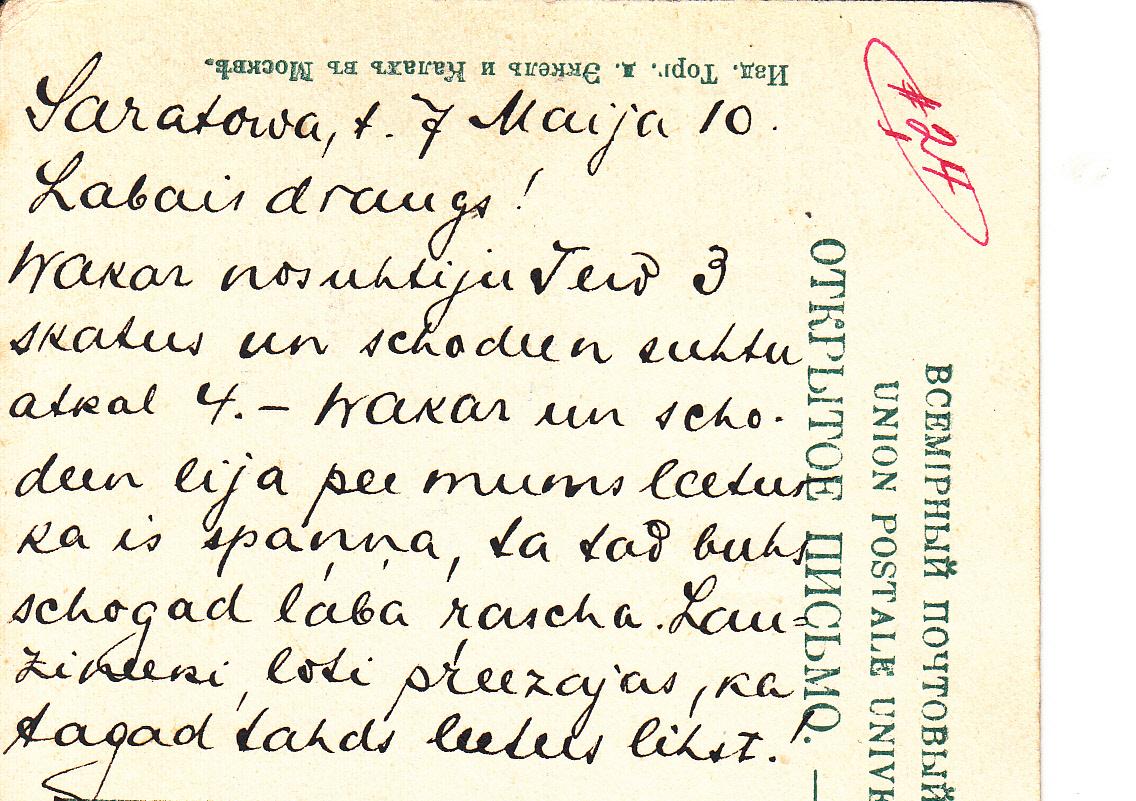 Изд. Торг. д. Эккель и Калахъ въ Москвѣ.
Saratowa, t. 7 Maija 10.
Labais draugs!
Wakar nosuhtiju Tew 3
skatus un schodeen suhtu
atkal 4. – Wakar un scho-
deen lija pee mums leetus
ka is spanņa, ta tad buhs
schogad laba rascha. Lau=
zineeki loti preezajas, ka
tagad tahds leetus lihst.!
ОТКРЫТОЕ ПИСЬМО. —
UNION POSTALE UNIVE
ВСЕМІРНЫЙ ПОЧТОВЫЙ
# 24